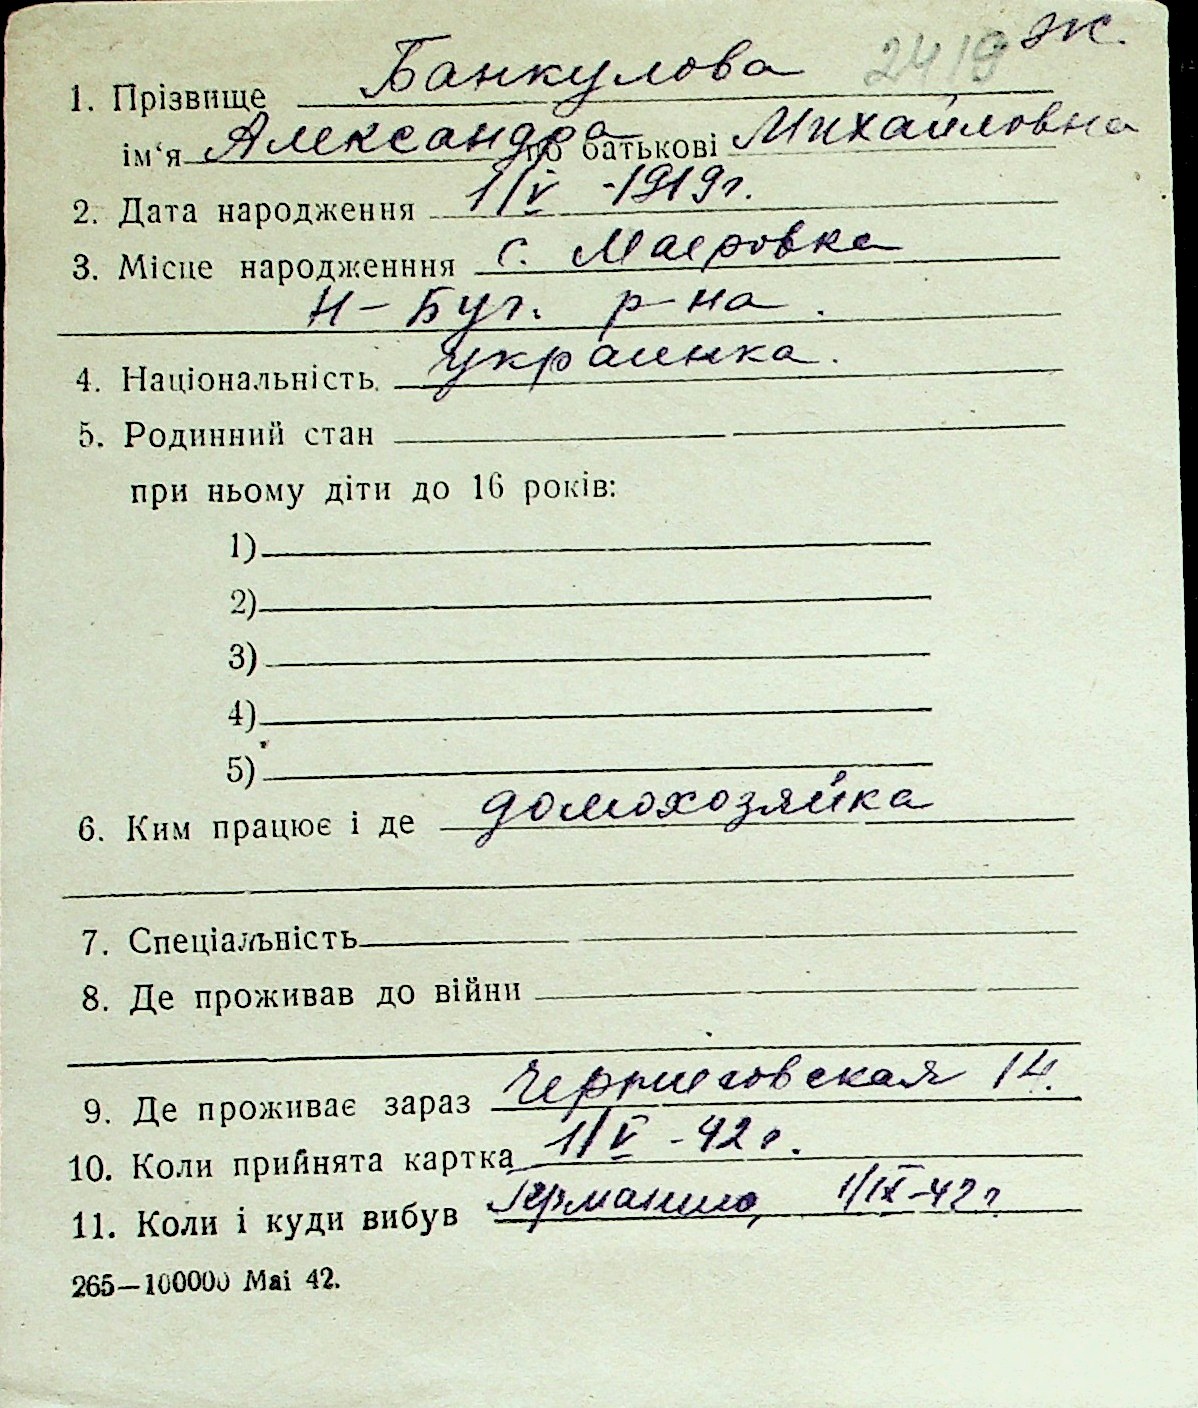 2419 Ж.
1. Прізвище Банкулова
ім'я Александра по батькові Михайловна
2. Дата народження 1/V -1919г.
3. Місце народженння с. Маеровка
Н-Буг. р-на.
4. Національність украинка.
5. Родинний стан
при ньому діти до 16 років:
1)
2)
3)
4)
5)
6. Ким працює і де домохозяйка
7. Спеціальність
8. Де проживав до війни
9. Де проживає зараз Черниговская 14.
10. Коли прийнята картка 1/V -42г.
11. Коли і куди вибув Германию, 1/IX-42г
265—100000 Mai 42.